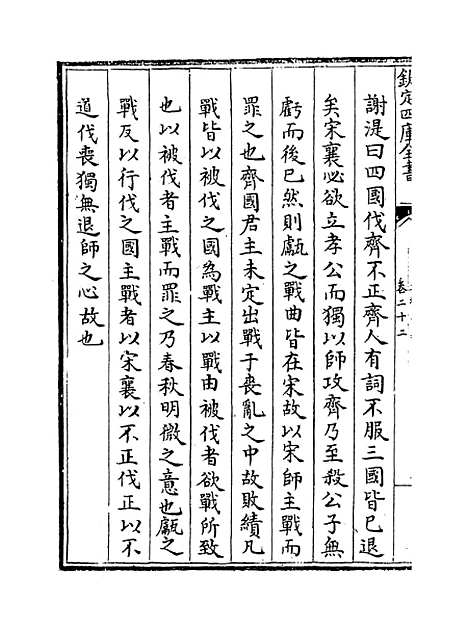 欽定四庫全書
卷二十二
謝湜曰四國伐齊不正齊人有詞不服三國皆已退
矣宋襄必欲立孝公而獨以師攻齊乃至殺公子無
虧而後已然則甗之戰曲皆在宋故以宋師主戰而
罪之也齊國君主未定出戰于喪亂之中故敗績凡
戰皆以被伐之國為戰主以戰由被伐者欲戰所致
也以被伐者主戰而罪之乃春秋明微之意也甗之
戰反以行伐之國主戰者以宋襄以不正伐正以不
道伐喪獨無退師之心故也